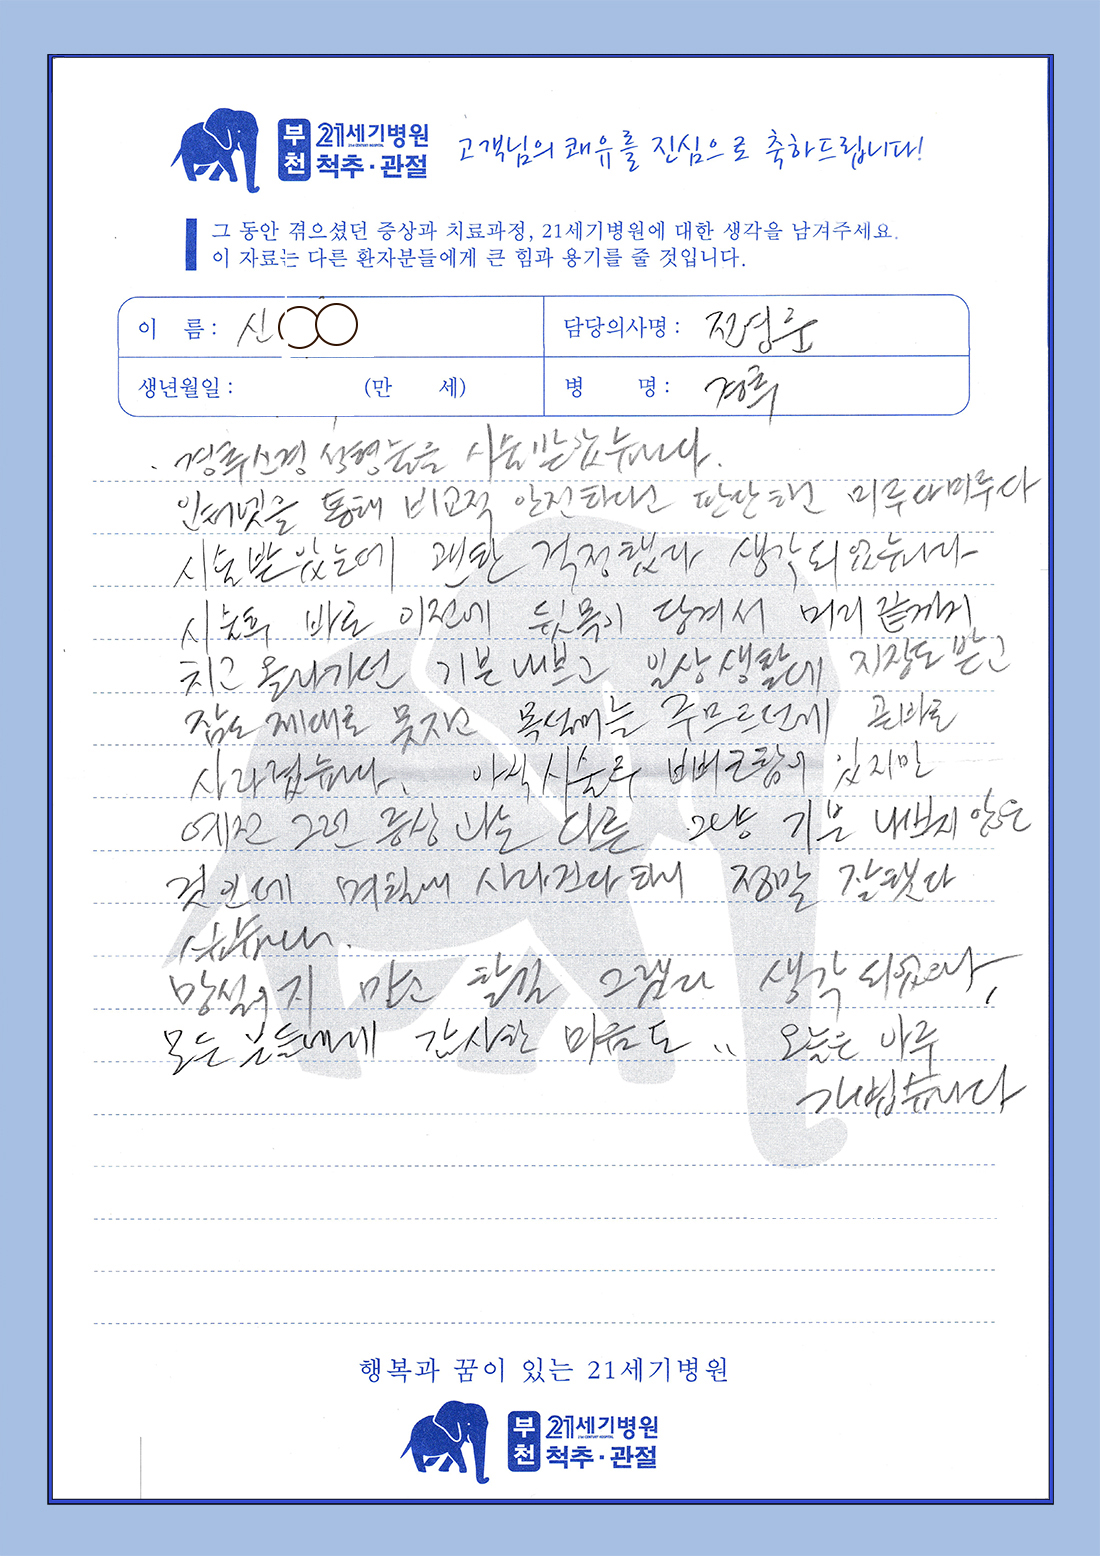 부천 21세기병원 척추·관절
21ST CENTURY HOSPITAL
고객님의 쾌유를 진심으로 축하드립니다!
그 동안 겪으셨던 증상과 치료과정, 21세기병원에 대한 생각을 남겨주세요.
이 자료는 다른 환자분들에게 큰 힘과 용기를 줄 것입니다.
이 름 : 신○○ 담당의사명 : 전영훈
생년월일 : (만 세) 병 명 : 경추
. 경추신경 성형술을 시술받았습니다.
인터넷을 통해 비교적 안전하다고 판단하고 미루다미루다
시술받았는데 괜한 걱정했다 생각되었습니다
시술후 바로 이전에 뒷목이 당겨서 머리끝까지
치고 올라가던 기분 나쁘고 일상생활에 지장도 받고
잠도 제대로 못자고 목 주무르던게 곧바로
사라졌습니다. 아직 시술후 뻐근함이 있지만
예전 그런 증상과는 다른 그냥 기분 나쁘지 않은
것인데 며칠내 사라진다하니 정말 잘했다
싶습니다.
망설이지 말고 할걸 그랬다 생각되었고,
모든 분들에게 감사한 마음도 .. 오늘은 아주
가볍습니다
행복과 꿈이 있는 21세기병원
부천 21세기병원 척추·관절
21ST CENTURY HOSPITAL